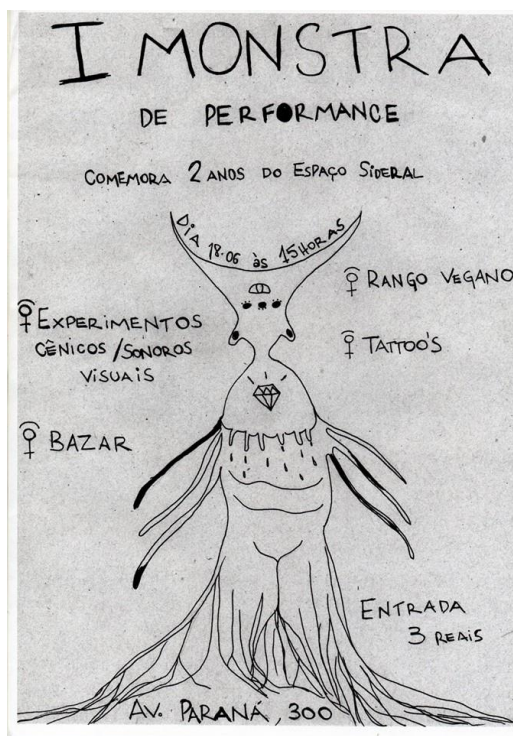 I MONSTRA
DE PERFORMANCE
COMEMORA 2 ANOS DO ESPAÇO SIDERAL
DIA 18.06 às 15 HORAS
RANGO VEGANO
EXPERIMENTOS
CÊNICOS / SONOROS
VISUAIS
TATTOO'S
BAZAR
ENTRADA
3 REAIS
AV. PARANÁ, 300